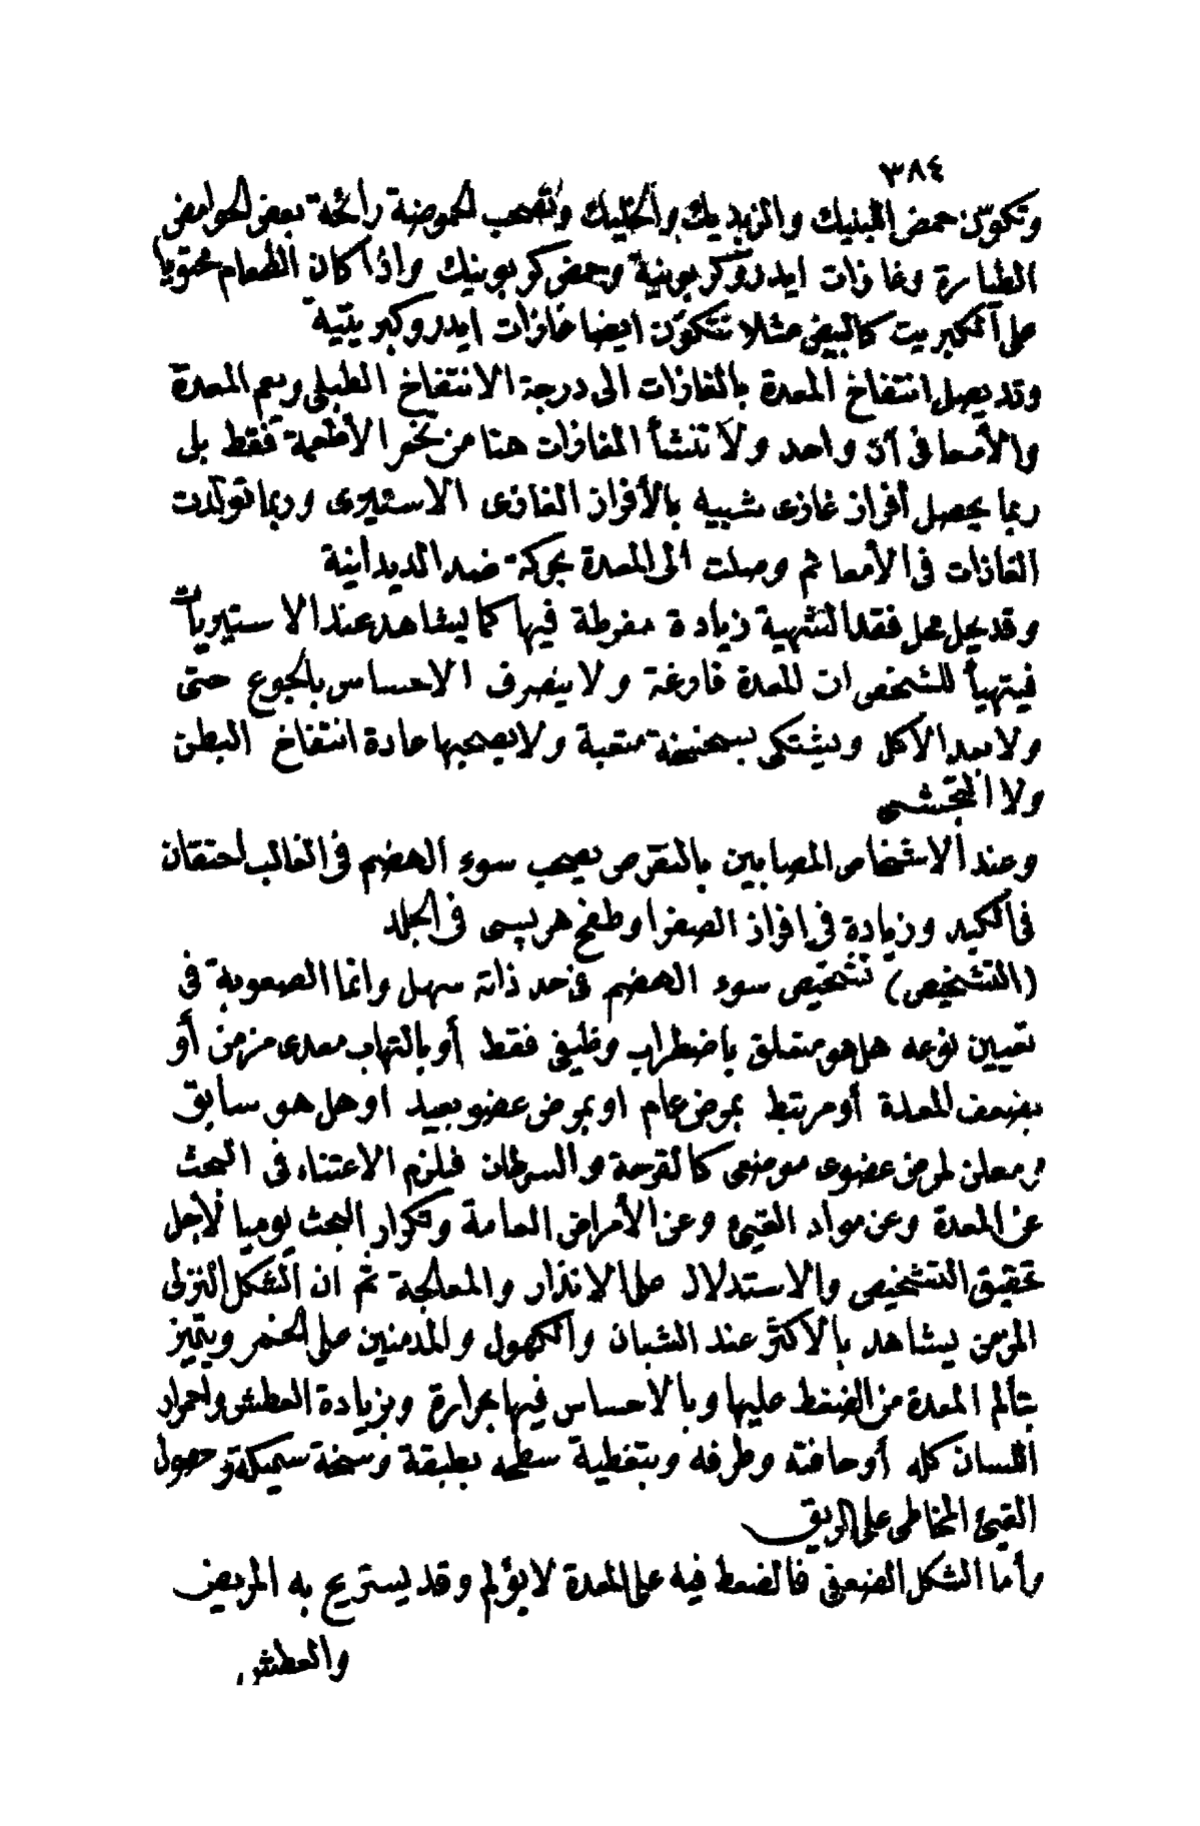 ٣٨٤
وتكوّن حمض اللبنيك والزبديك والخليك وتصحب الحموضة رائحة بعض الحوامض
الطيارة وغازات ايدروكربونية وحمض كربونيك واذا كان الطعام محتويا
على الكبريت كالبيض مثلا تتكوّن ايضا غازات ايدروكبريتية
وقد يصل انتفاخ المعدة بالغازات الى درجة الانتفاخ الطبلى ويعم المعدة
والأمعا فى آن واحد ولا تنشأ الغازات هنا من تخمر الأطعمة فقط بل
ربما يحصل أفراز غازى شبيه بالأفراز الغازى الاستيرى وربما تولدت
الغازات فى الأمعا ثم وصلت الى المعدة بحركة ضد الديدانية
وقد يحل محل فقد الشهية زيادة مفرطة فيها كما يشاهد عند الاستيريات
فيتهيأ للشخص ان المعدة فارغة ولا ينصرف الاحساس بالجوع حتى
ولا بعد الأكل ويشتكى بسخنفة متعبة ولا يصحبها عادة انتفاخ البطن
ولا التجشى
وعند الاشخاص المصابين بالنقرص يصحب سوء الهضم فى الغالب احتقان
فى الكبد وزيادة فى افراز الصفرا وطفح هربسى فى الجلد
(التشخيص) تشخيص سوء الهضم فى حد ذاته سهل وانما الصعوبة فى
تعيين نوعه هل هو متعلق باضطراب وظيفى فقط أو بالتهاب معدى مزمن أو
بضعف المعدة أو مرتبط بمرض عام او بمرض عضو بعيد او هل هو سابق
ومعلن لمرض عضوى موضعى كالقرحة والسرطان فيلزم الاعتناء فى البحث
عن المعدة وعن مواد القيئ وعن الأمراض العامة وتكرار البحث يوميا لأجل
تحقيق التشخيص والاستدلال على الانذار والمعالجة ثم ان الشكل النزلى
المزمن يشاهد بالاكثر عند الشبان والكهول والمدمنين على الخمر ويتميز
بتألم المعدة من الضغط عليها وبالاحساس فيها بحرارة وبزيادة العطش واحمرار
اللسان كله أو حافته وطرفه وبتغطية سطحه بطبقة وسخة سميكة وحصول
القيئ المخاطى على الريق
وأما الشكل الضعفى فالضغط فيه على المعدة لا يؤلم وقد يستريح به المريض
والعطش